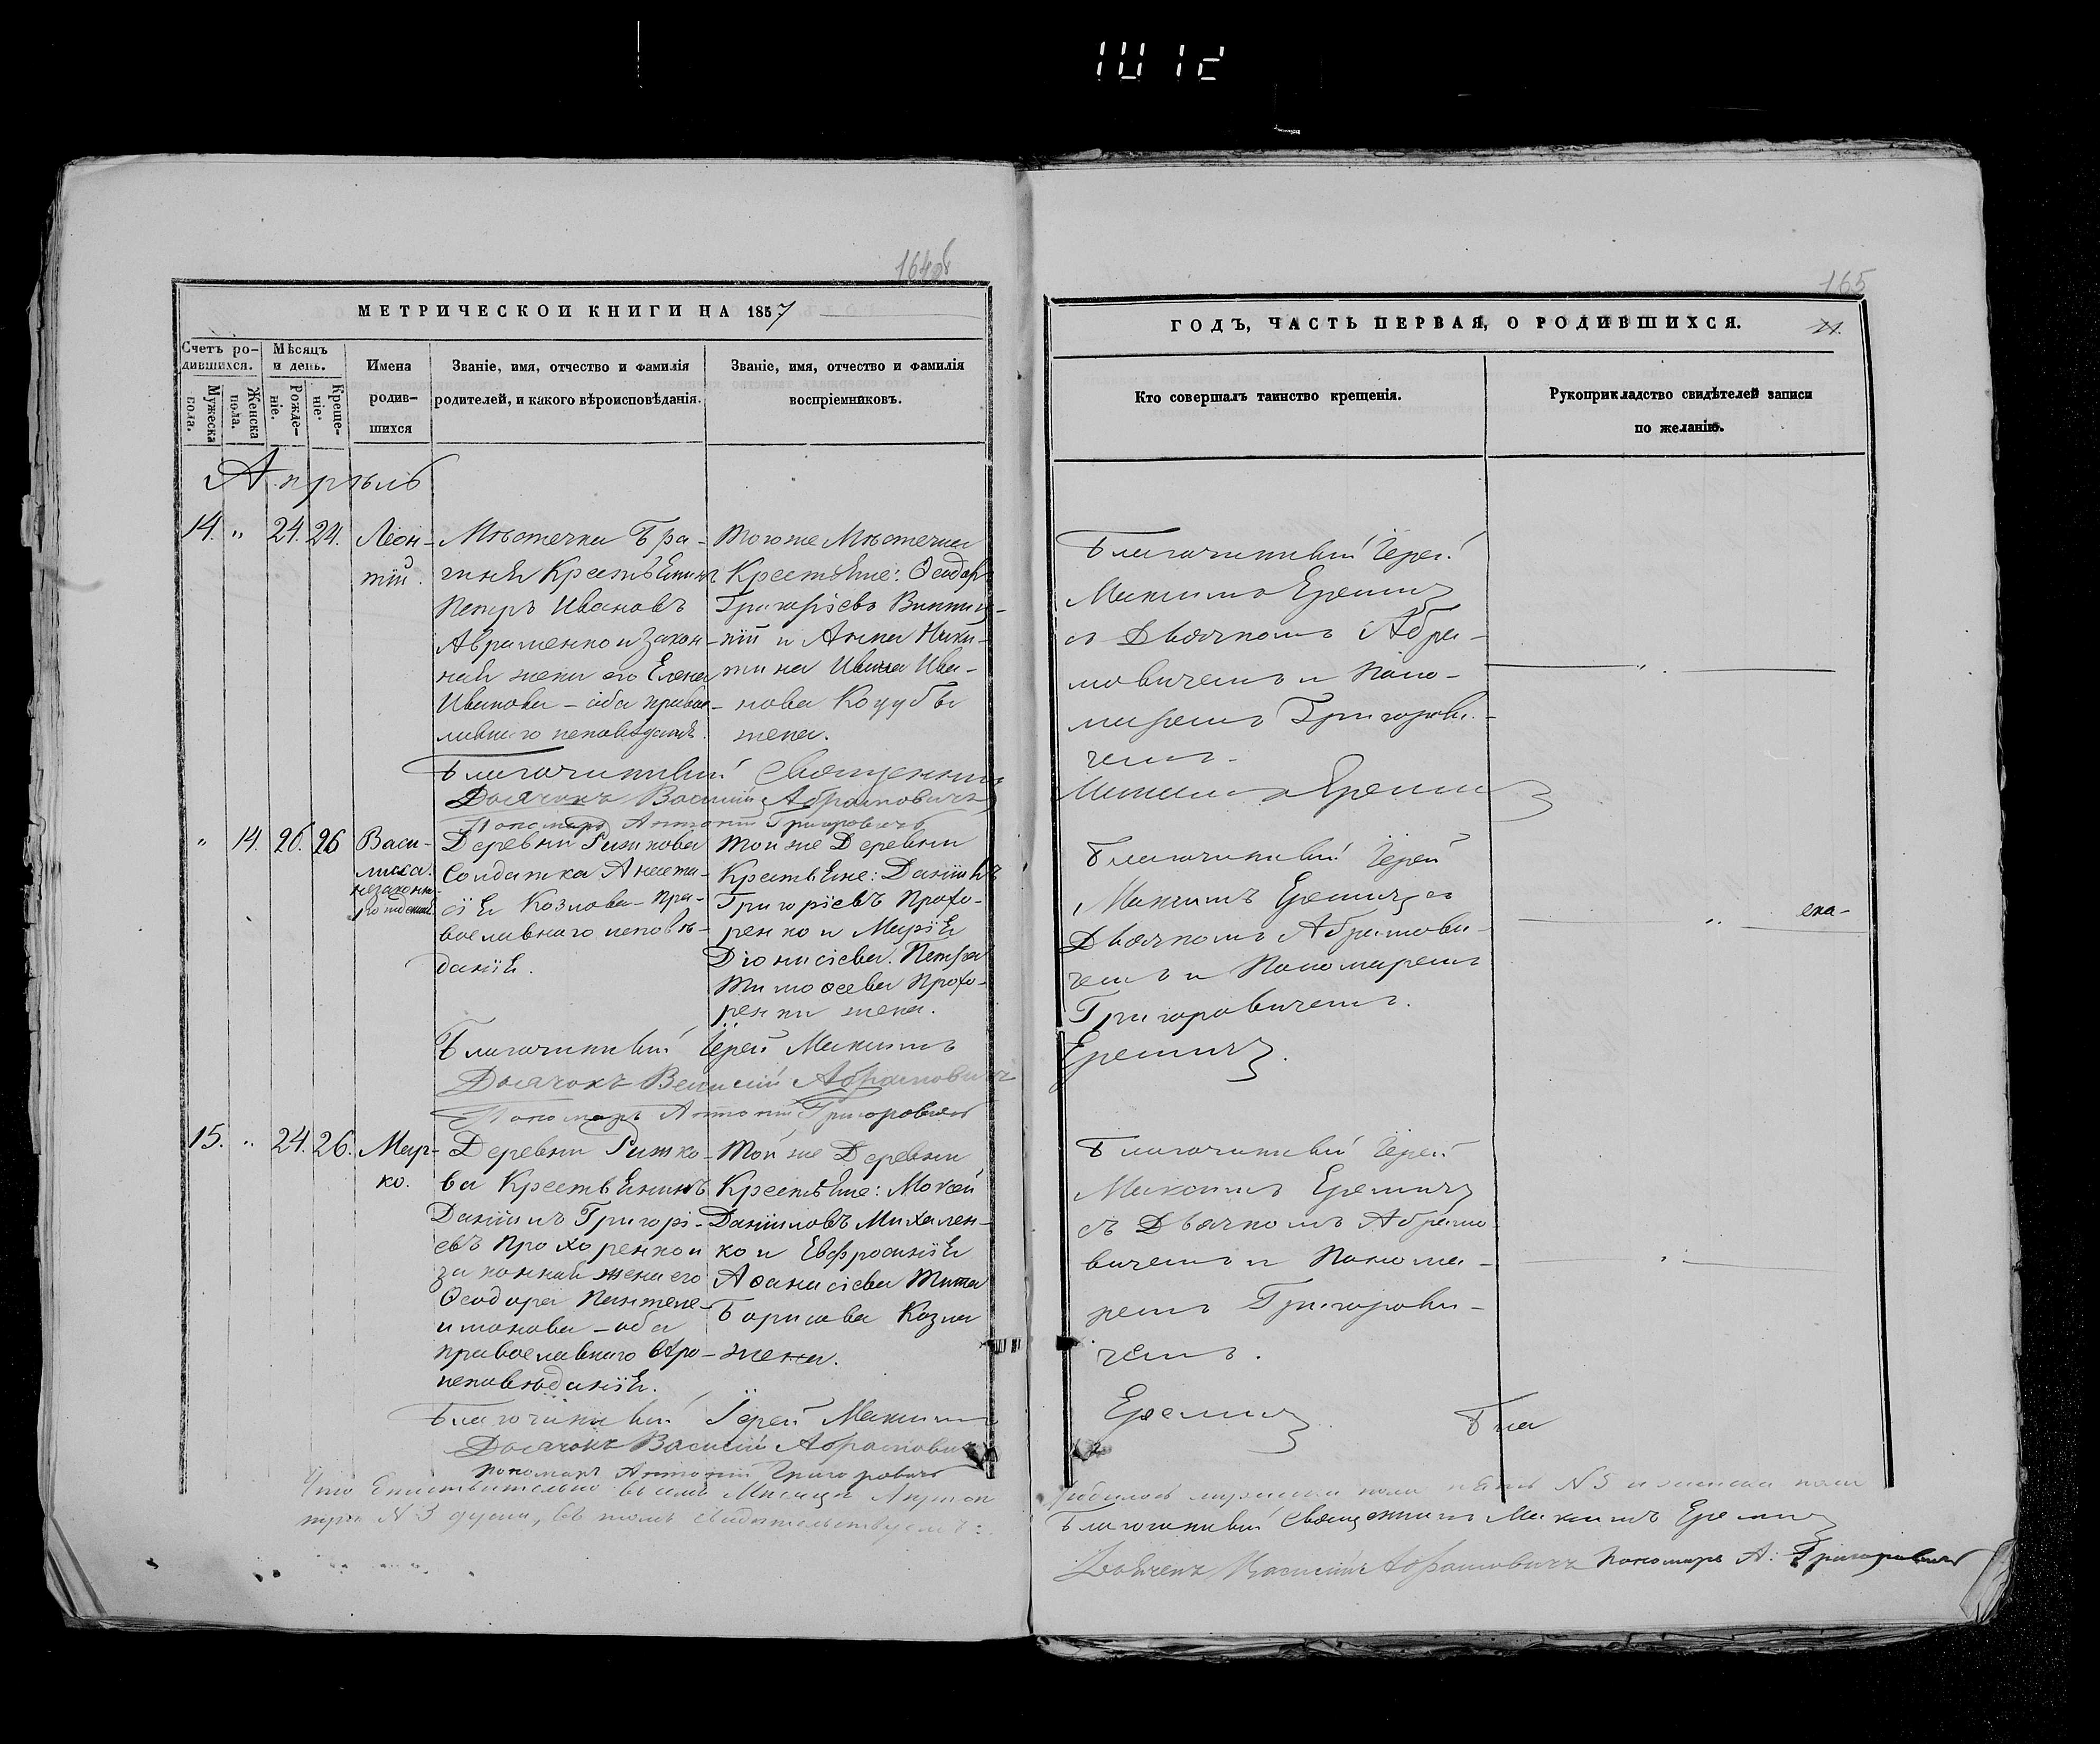 1012
164об
МЕТРИЧЕСКОЙ КНИГИ НА 1857
Счетъ ро-
дившихся.
Мѣсяцъ
и день.
Мужеска
пола.
Женска
пола.
Рожде-
ніе.
Креще-
ніе.
Имена
родив-
шихся
Званіе, имя, отчество и фамилія
родителей, и какого вѣроисповѣданія.
Званіе, имя, отчество и фамилія
воспріемниковъ.
Апрѣль
14. " 24. 24.
Леон-
тій.
Мѣстечка Бра-
гиня Крестьянинъ
Петръ Ивановъ
Авраменко и закон-
ная жена его Елена
Иванова – оба право-
славнаго исповѣданія.
Тогоже Мѣстечка
Крестьяне: Ѳеодоръ
Григорьевъ
и Анна Ники-
тина Ивана Ива-
нова Коцубы
жена.
Благочинный Священникъ
Дьячокъ Василій Абрамовичъ
Пономарь Антоній Григоровичъ
" 14. 26. 26
Васи-
лиса.
незаконно-
рожденная
Деревни Рижкова
Солдатка Анаста-
сія Козлова – пра-
вославнаго исповѣ-
данія.
Тойже Деревни
Крестьяне: Даніилъ
Григорьевъ Прохо-
ренко и Марія
Діонисіева. Петра
Тимоѳеева Прохо-
ренки жена.
Благочинный Іерей Максимъ
Дьячокъ Василій Абрамовичъ
Пономарь Антоній Григоровичъ
15. " 24. 26.
Мар-
ко.
Деревни Рижко-
ва Крестьянинъ
Даніилъ Григорі-
евъ Прохоренко и
законная жена его
Ѳеодора Пантеле-
имонова – оба
православнаго
исповѣданія.
Тойже Деревни
Крестьяне: Моѵсей
Данииловъ Михален-
ко и Евфросинія
Аѳанасіева Тита
Борисова Козла
жена.
Благочинный Іерей Максимъ
Дьячокъ Василій Абрамовичъ
Пономарь Антоній Григоровичъ
Что дѣйствительно въ семъ Мѣсяцѣ
три №3 души, въ томъ свидѣтельствуемъ:
165
ГОДЪ, ЧАСТЬ ПЕРВАЯ, О РОДИВШИХСЯ.
11.
Кто совершалъ таинство крещенія.
Рукоприкладство свидѣтелей записи
по желанію.
Благочинный Іерей
Максимъ Еремичъ
съ Дьячкомъ Абра-
мовичемъ и Поно-
маремъ Григорови-
чемъ.
Максимъ Еремичъ
Благочинный Іерей
Максимъ Еремичъ съ
Дьячкомъ Абрамови-
чемъ и Пономаремъ
Григоровичемъ.
Еремичъ.
Благочинный Іерей
Максимъ Еремичъ
съ Дьячкомъ Абрамо-
вичемъ и Понома-
ремъ Григорови-
чемъ.
Еремичъ.
родилось мужеска пола пять №5 и женска пола
Благочинный Священникъ Максимъ Еремичъ
Дьячокъ Василій Абрамовичъ Пономарь А: Григоровичъ